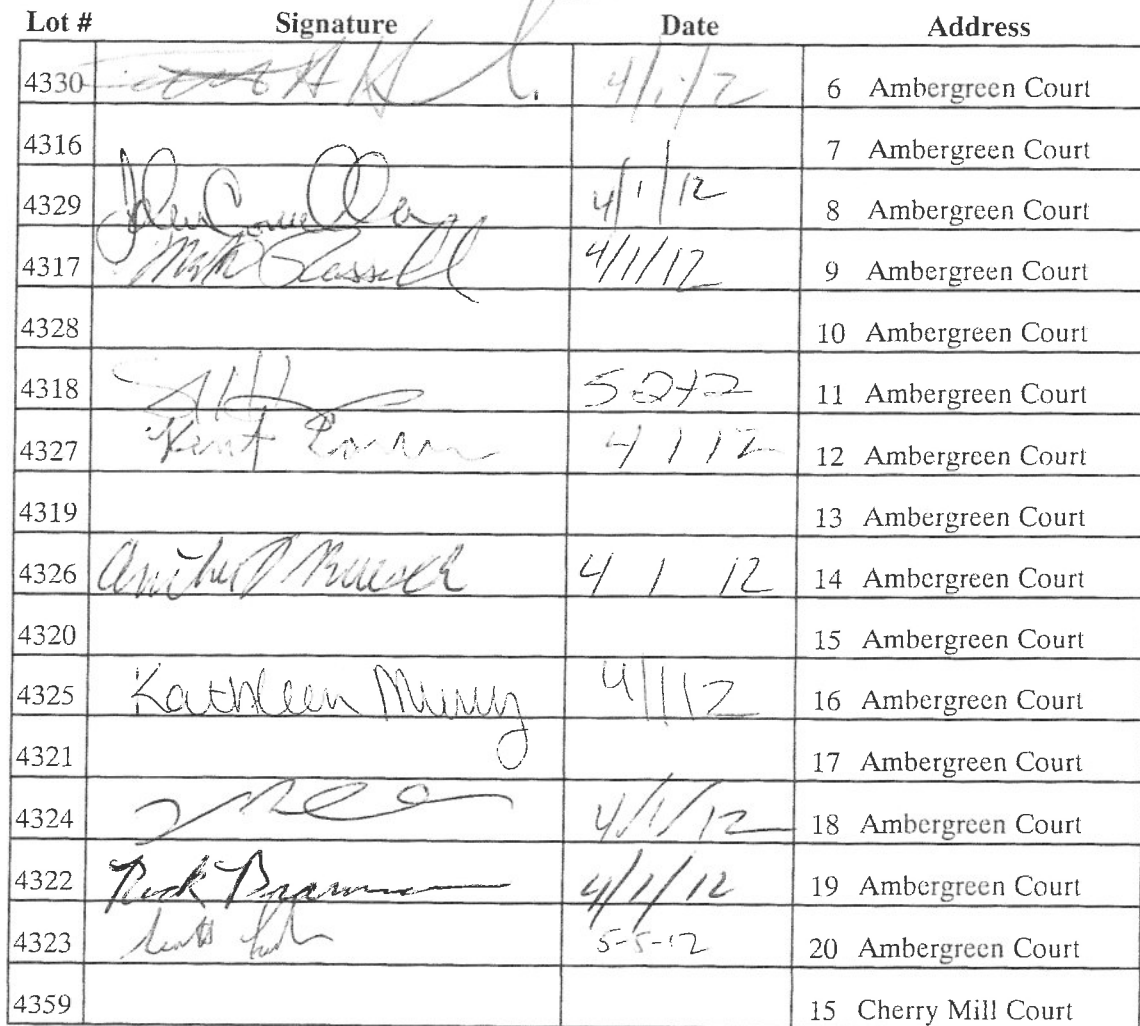 Lot # Signature Date Address
4330 4/1/12 6 Ambergreen Court
4316 7 Ambergreen Court
4329 4/1/12 8 Ambergreen Court
4317 4/1/12 9 Ambergreen Court
4328 10 Ambergreen Court
4318 11 Ambergreen Court
4327 Kent 4/1/12 12 Ambergreen Court
4319 13 Ambergreen Court
4326 4 1 12 14 Ambergreen Court
4320 15 Ambergreen Court
4325 Kathleen 4/1/12 16 Ambergreen Court
4321 17 Ambergreen Court
4324 4/1/12 18 Ambergreen Court
4322 Rick 4/1/12 19 Ambergreen Court
4323 5-5-12 20 Ambergreen Court
4359 15 Cherry Mill Court